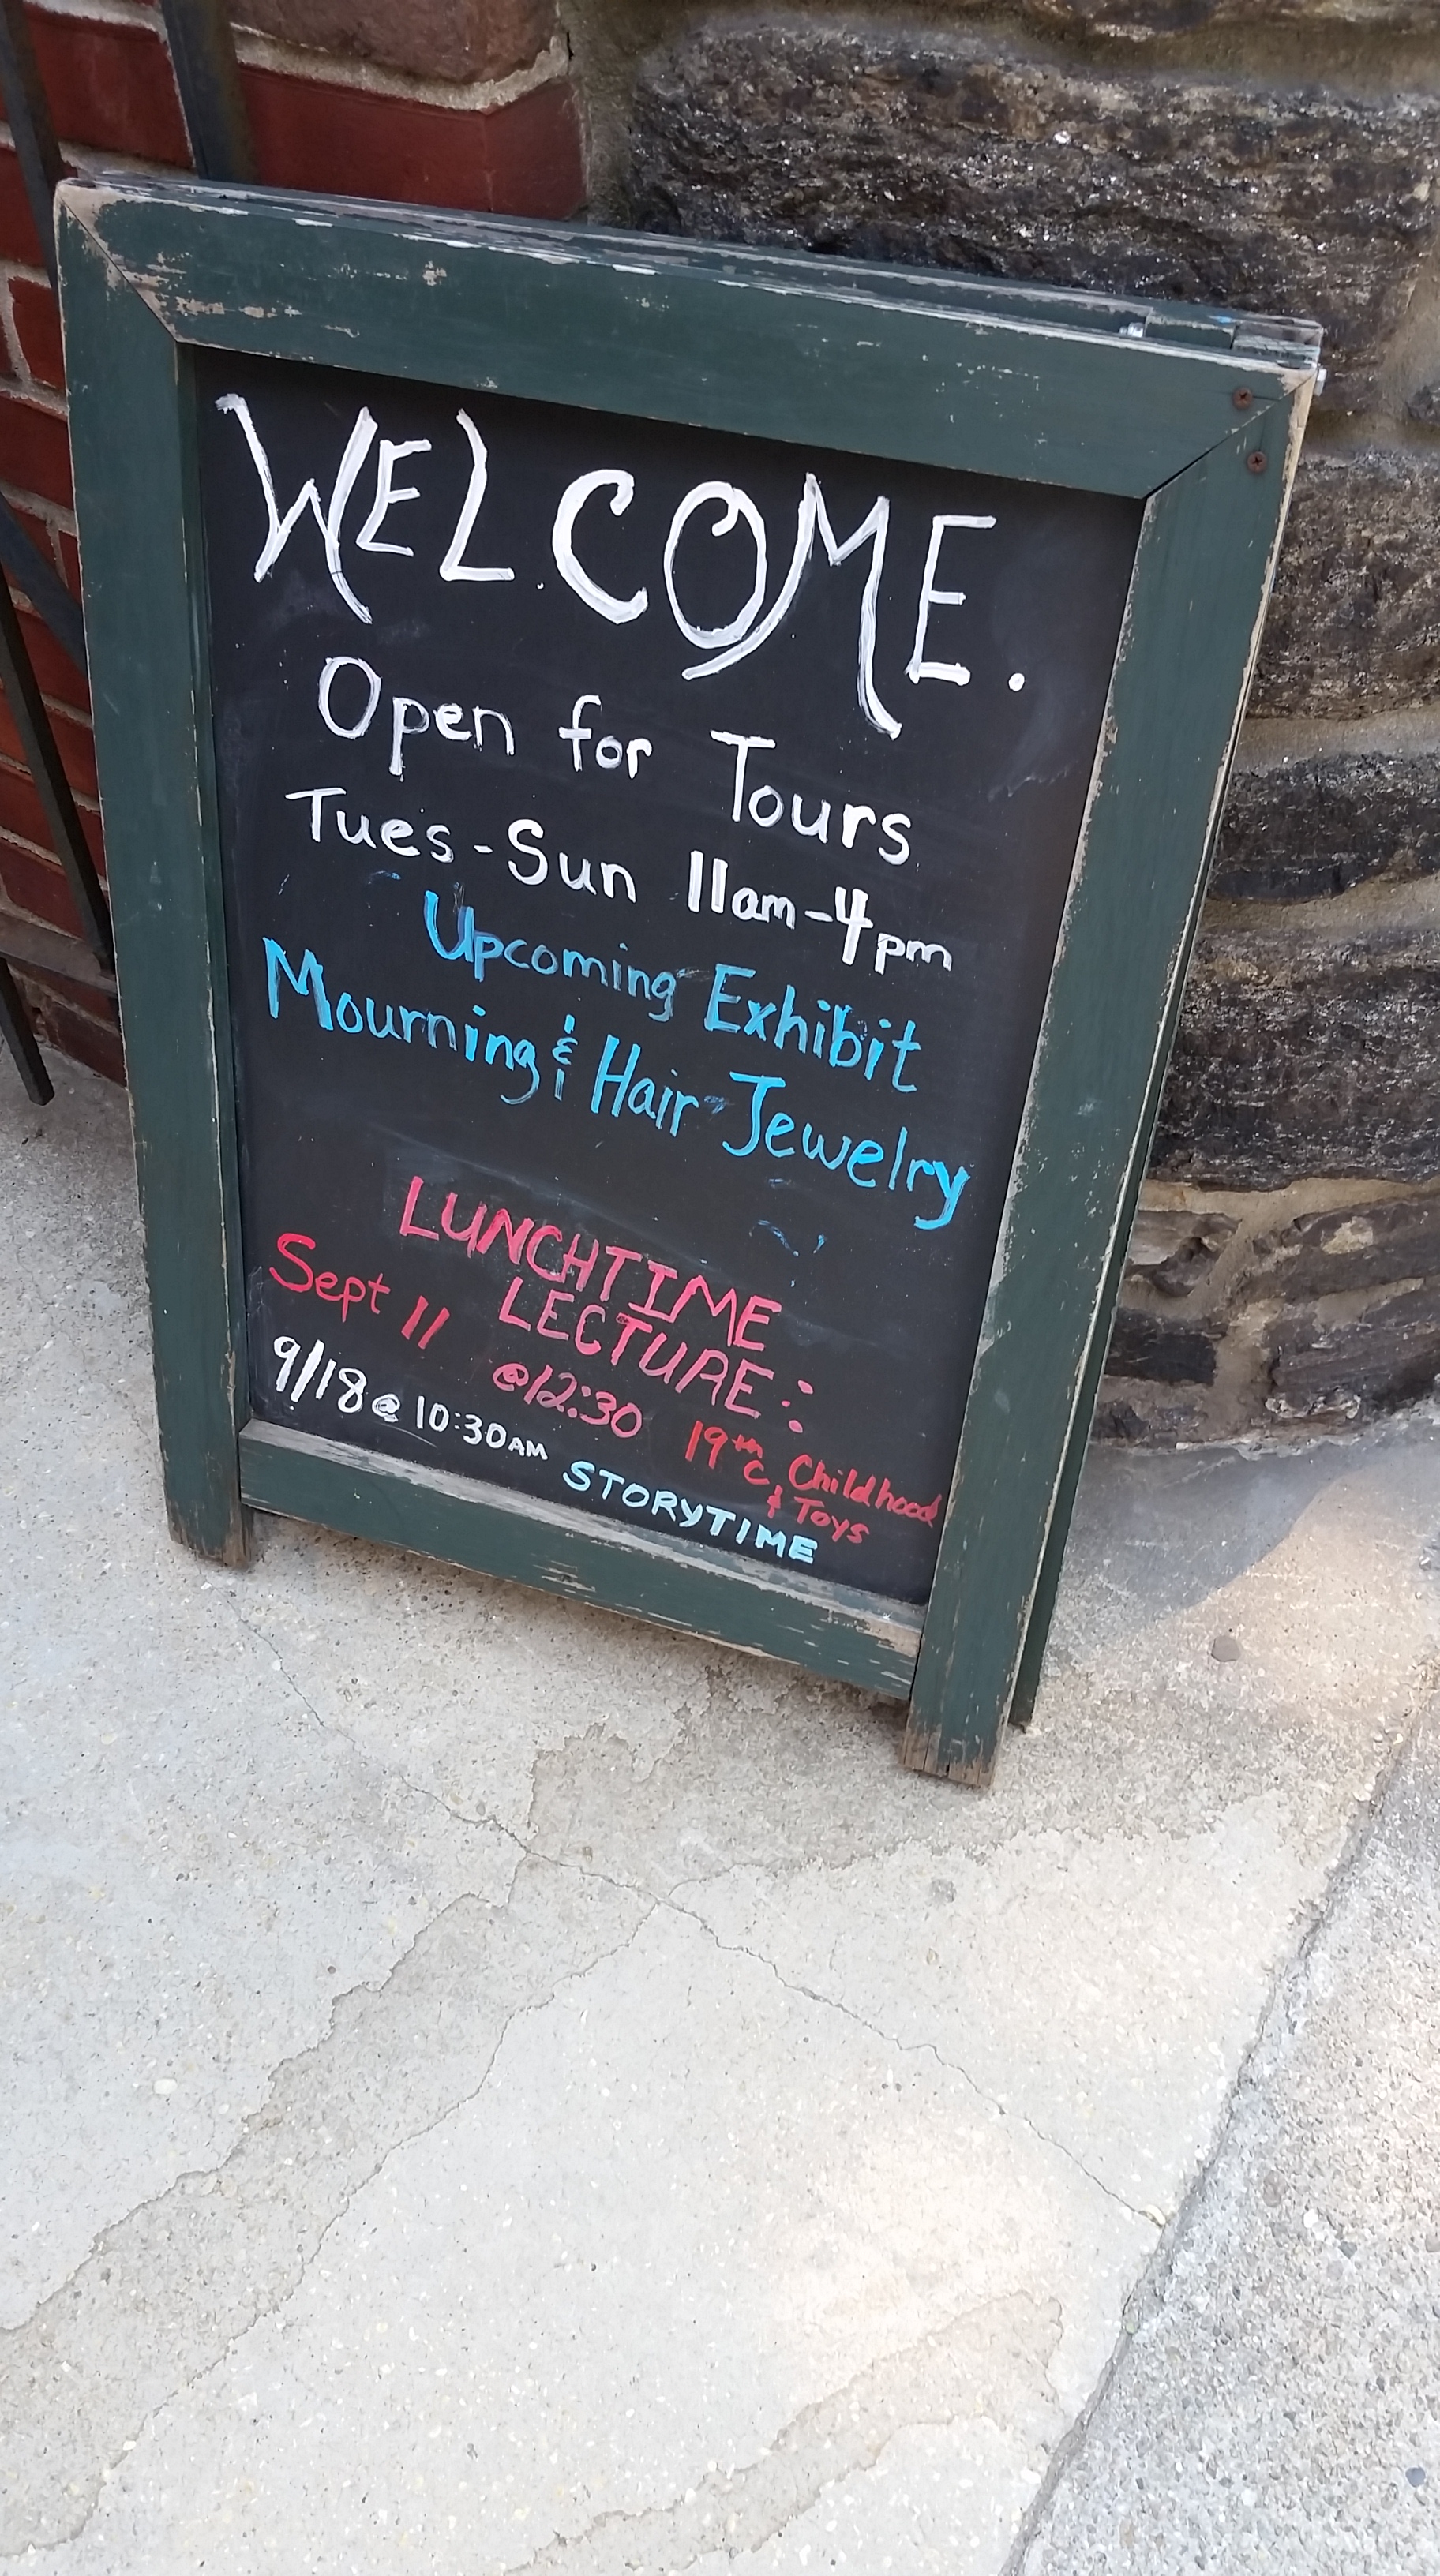 WELCOME.
Open for Tours
Tues-Sun 11am-4pm
Upcoming Exhibit
Mourning & Hair Jewelry
LUNCHTIME
LECTURE:
Sept 11 @12:30 19th C Childhood
& Toys
9/18 @ 10:30AM STORYTIME